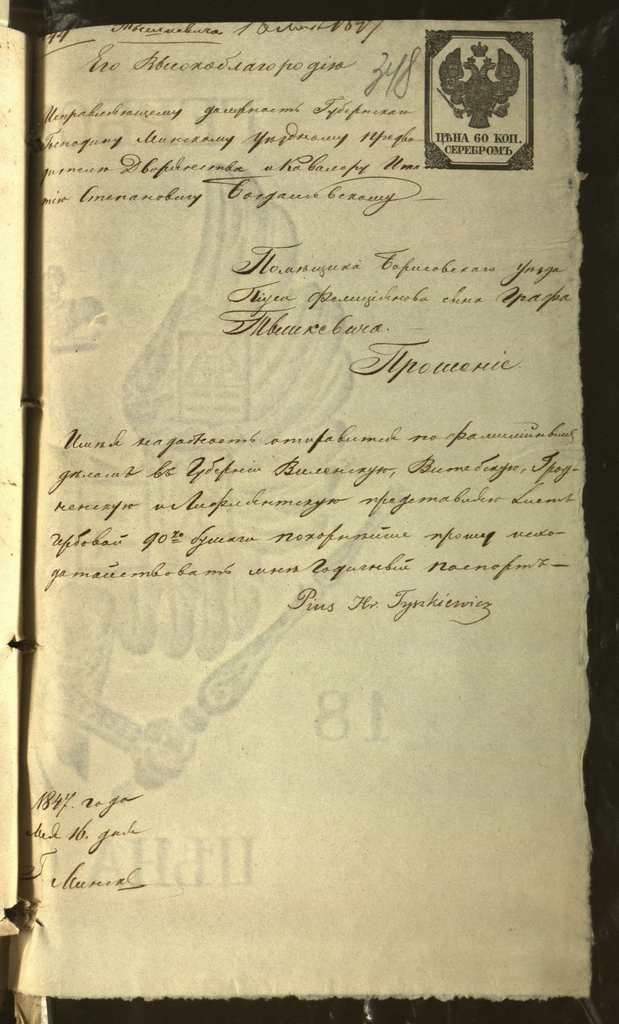 Тышкевича 16 Мая 1847
Его Высокоблагородію
348
ЦѢНА 60 КОП.
СЕРЕБРОМЪ
Исправляющему должность Губернскаго
Господину Минскому уѣздному предво
дителю Дворянства и Кавалеру Игна
тію Степановичу Богдашевскому
Помѣщика Борисовскаго уѣзда
Піуса Фелиціянова сына Графа
Тышкевича.
Прошеніе.
Имѣя надобность отправится по фамилійнымъ
дѣламъ въ Губерніи Виленскую, Витебскую, Грод-
ненскую и Лифляндскую представляю листъ
гербовой 90 ко бумаги покорнѣйше прошу исхо-
датайствовать мнѣ Годичный паспортъ—
Pius Hr. Tyszkiewicz
1847. года
Мая 16. дня
Г Минскъ
18
ЦѢНА